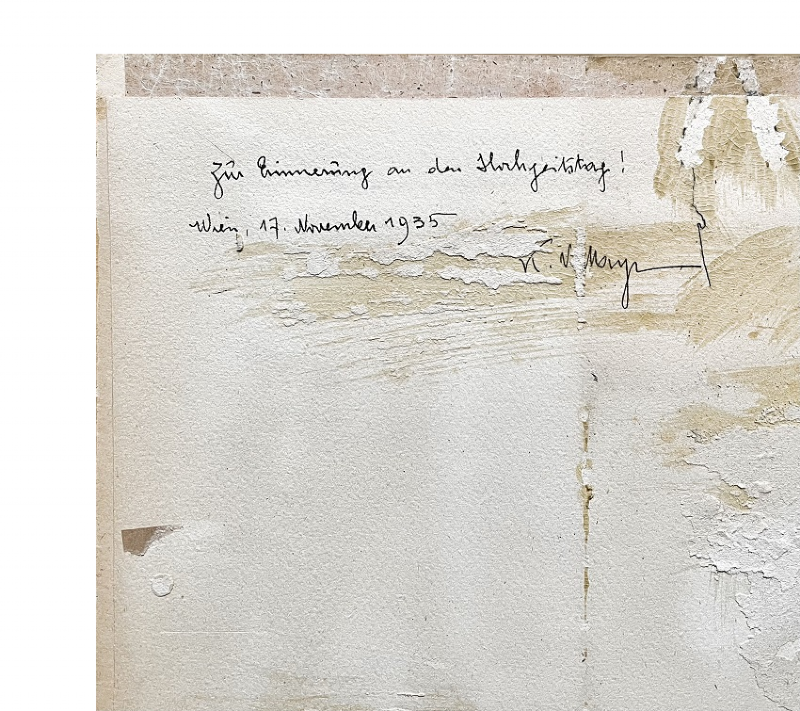 Zur Erinnerung an den Hochzeitstag!
Wien, 17. November 1935